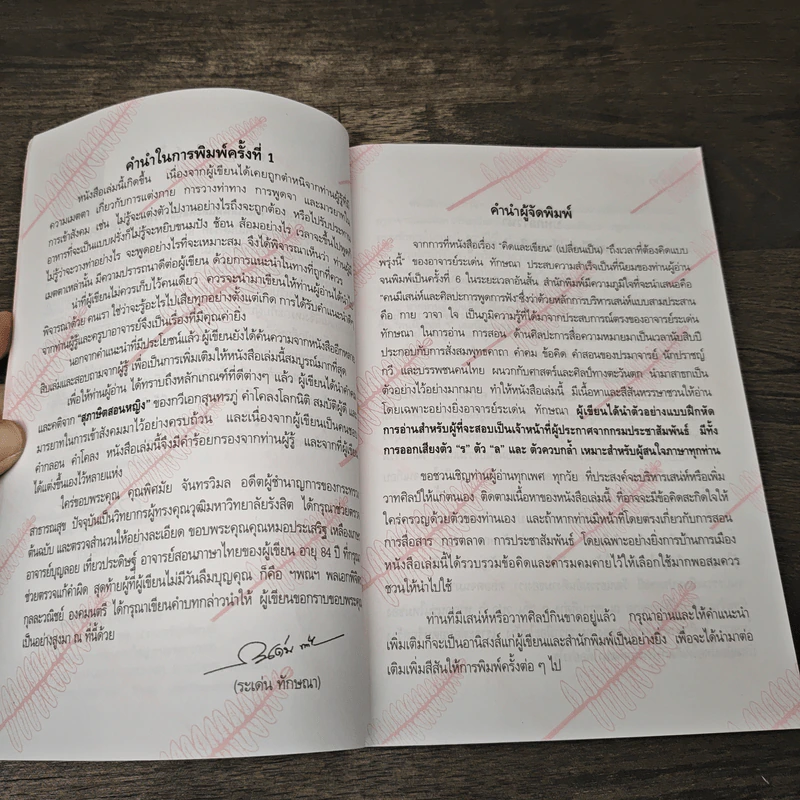 คำนำในการพิมพ์ครั้งที่ 1
หนังสือเล่มนี้เกิดขึ้น เนื่องจากผู้เขียนได้เคยถูกตำหนิจากท่านผู้รู้ที่มี
ความเมตตา เกี่ยวกับการแต่งกาย การวางท่าทาง การพูดจา และมารยาทใน
การเข้าสังคม เช่น ไม่รู้จะแต่งตัวไปงานอย่างไรถึงจะถูกต้อง หรือไปรับประทาน
อาหารที่จะเป็นแบบฝรั่งก็ไม่รู้จะหยิบขนมปัง ช้อน ส้อมอย่างไร เวลาจะขึ้นไปพูดก็
ไม่รู้จะวางท่าอย่างไร จะพูดอย่างไรที่จะเหมาะสม จึงได้พิจารณาเห็นว่า ท่านผู้
เมตตาเหล่านั้น มีความปรารถนาดีต่อผู้เขียน ด้วยการแนะนำในทางที่ถูกที่ควร
น่าที่ผู้เขียนไม่ควรเก็บไว้ใครคนเดียว ควรจะนำมาเขียนให้ท่านผู้อ่านได้
พิจารณาด้วย คนเรา ใช่ว่าจะรู้อะไรไปเสียทุกอย่างตั้งแต่เกิด การได้รับคำแนะนำ
จากท่านผู้รู้และครูบาอาจารย์จึงเป็นเรื่องที่มีคุณค่ายิ่ง
นอกจากคำแนะนำที่มีประโยชน์แล้ว ผู้เขียนยังได้ค้นความจากหนังสืออีกหลาย
สิบเล่มและสอบถามจากผู้รู้ เพื่อเป็นการเพิ่มเติมให้หนังสือเล่มนี้สมบูรณ์มากที่สุด
เพื่อให้ท่านผู้อ่าน ได้ทราบถึงหลักเกณฑ์ที่ดีต่างๆ แล้ว ผู้เขียนได้นำคำคม
และคติจาก "สุภาษิตสอนหญิง" ของกวีเอกสุนทรภู่ คำโคลงโลกนิติ สมบัติผู้ดี และ
มารยาทในการเข้าสังคมมาไว้อย่างครบถ้วน และเนื่องจากผู้เขียนเป็นคนชอบ
คำกลอน คำโคลง หนังสือเล่มนี้จึงมีคำร้อยกรองจากท่านผู้รู้ และจากที่ผู้เขียน
ได้แต่งขึ้นเองไว้หลายแห่ง
ใคร่ขอบพระคุณ คุณพิศมัย จันทรวิมล อดีตผู้ชำนาญการของกระทรวง
สาธารณสุข ปัจจุบันเป็นวิทยากรผู้ทรงคุณวุฒิมหาวิทยาลัยรังสิต ได้กรุณาช่วยตรวจ
ต้นฉบับ และตรวจสำนวนให้อย่างละเอียด ขอบพระคุณคุณหมอประเสริฐ เหลืองเภา
อาจารย์บุญลอย เที่ยวประดิษฐ์ อาจารย์สอนภาษาไทยของผู้เขียน อายุ 84 ปี ที่กรุณา
ช่วยตรวจแก้คำผิด สุดท้ายผู้ที่ผู้เขียนไม่มีวันลืมบุญคุณ ก็คือ ฯพณฯ พลเอกพิจิตร
กุลละวณิชย์ องคมนตรี ได้กรุณาเขียนคำบทกล่าวนำให้ ผู้เขียนขอกราบขอบพระคุณ
เป็นอย่างสูงมา ณ ที่นี้ด้วย
(ระเด่น ทักษณา)
คำนำผู้จัดพิมพ์
จากการที่หนังสือเรื่อง "คิดและเขียน" (เปลี่ยนเป็น) "ถึงเวลาที่ต้องคิดแบบ
พรุ่งนี้" ของอาจารย์ระเด่น ทักษณา ประสบความสำเร็จเป็นที่นิยมของท่านผู้อ่าน
จนพิมพ์เป็นครั้งที่ 6 ในระยะเวลาอันสั้น สำนักพิมพ์มีความภูมิใจที่จะนำเสนอคือ
"คนมีเสน่ห์และศิลปะการพูดการฟัง" ซึ่งว่าด้วยหลักการบริหารเสน่ห์แบบสามประสาน
คือ กาย วาจา ใจ เป็นภูมิความรู้ที่ได้มาจากประสบการณ์ตรงของอาจารย์ระเด่น
ทักษณา ในการอ่าน การสอน ด้านศิลปะการสื่อความหมายมาเป็นเวลานับสิบปี
ประกอบกับการสั่งสมพุทธคาถา คำคม ข้อคิด คำสอนของปรมาจารย์ นักปราชญ์
กวี และบรรพชนคนไทย ผนวกกับศาสตร์และศิลป์ทางตะวันตก นำมาสาธกเป็น
ตัวอย่างไว้อย่างมากมาย ทำให้หนังสือเล่มนี้ มีเนื้อหาและสีสันพรรษาชวนให้อ่าน
โดยเฉพาะอย่างยิ่งอาจารย์ระเด่น ทักษณา ผู้เขียนได้นำตัวอย่างแบบฝึกหัด
การอ่านสำหรับผู้ที่จะสอบเป็นเจ้าหน้าที่ผู้ประกาศจากกรมประชาสัมพันธ์ มีทั้ง
การออกเสียงตัว "ร" ตัว "ล" และ ตัวควบกล้ำ เหมาะสำหรับผู้สนใจภาษาทุกท่าน
ขอชวนเชิญท่านผู้อ่านทุกเพศ ทุกวัย ที่ประสงค์จะบริหารเสน่ห์หรือเพิ่ม
วาทศิลป์ให้แก่ตนเอง ติดตามเนื้อหาของหนังสือเล่มนี้ ที่อาจจะมีข้อคิดสะกิดใจให้
ใคร่ครวญด้วยตัวของท่านเอง และถ้าหากท่านมีหน้าที่โดยตรงเกี่ยวกับการสอน
การสื่อสาร การตลาด การประชาสัมพันธ์ โดยเฉพาะอย่างยิ่งการบ้านการเมือง
หนังสือเล่มนี้ได้รวบรวมข้อคิดและคารมคมคายไว้ให้เลือกใช้มากพอสมควร
ชวนให้นำไปใช้
ท่านที่มีเสน่ห์หรือวาทศิลป์กินขาดอยู่แล้ว กรุณาอ่านและให้คำแนะนำ
เพิ่มเติมก็จะเป็นอานิสงส์แก่ผู้เขียนและสำนักพิมพ์เป็นอย่างยิ่ง เพื่อจะได้นำมาต่อ
เติมเพิ่มสีสันให้การพิมพ์ครั้งต่อ ๆ ไป